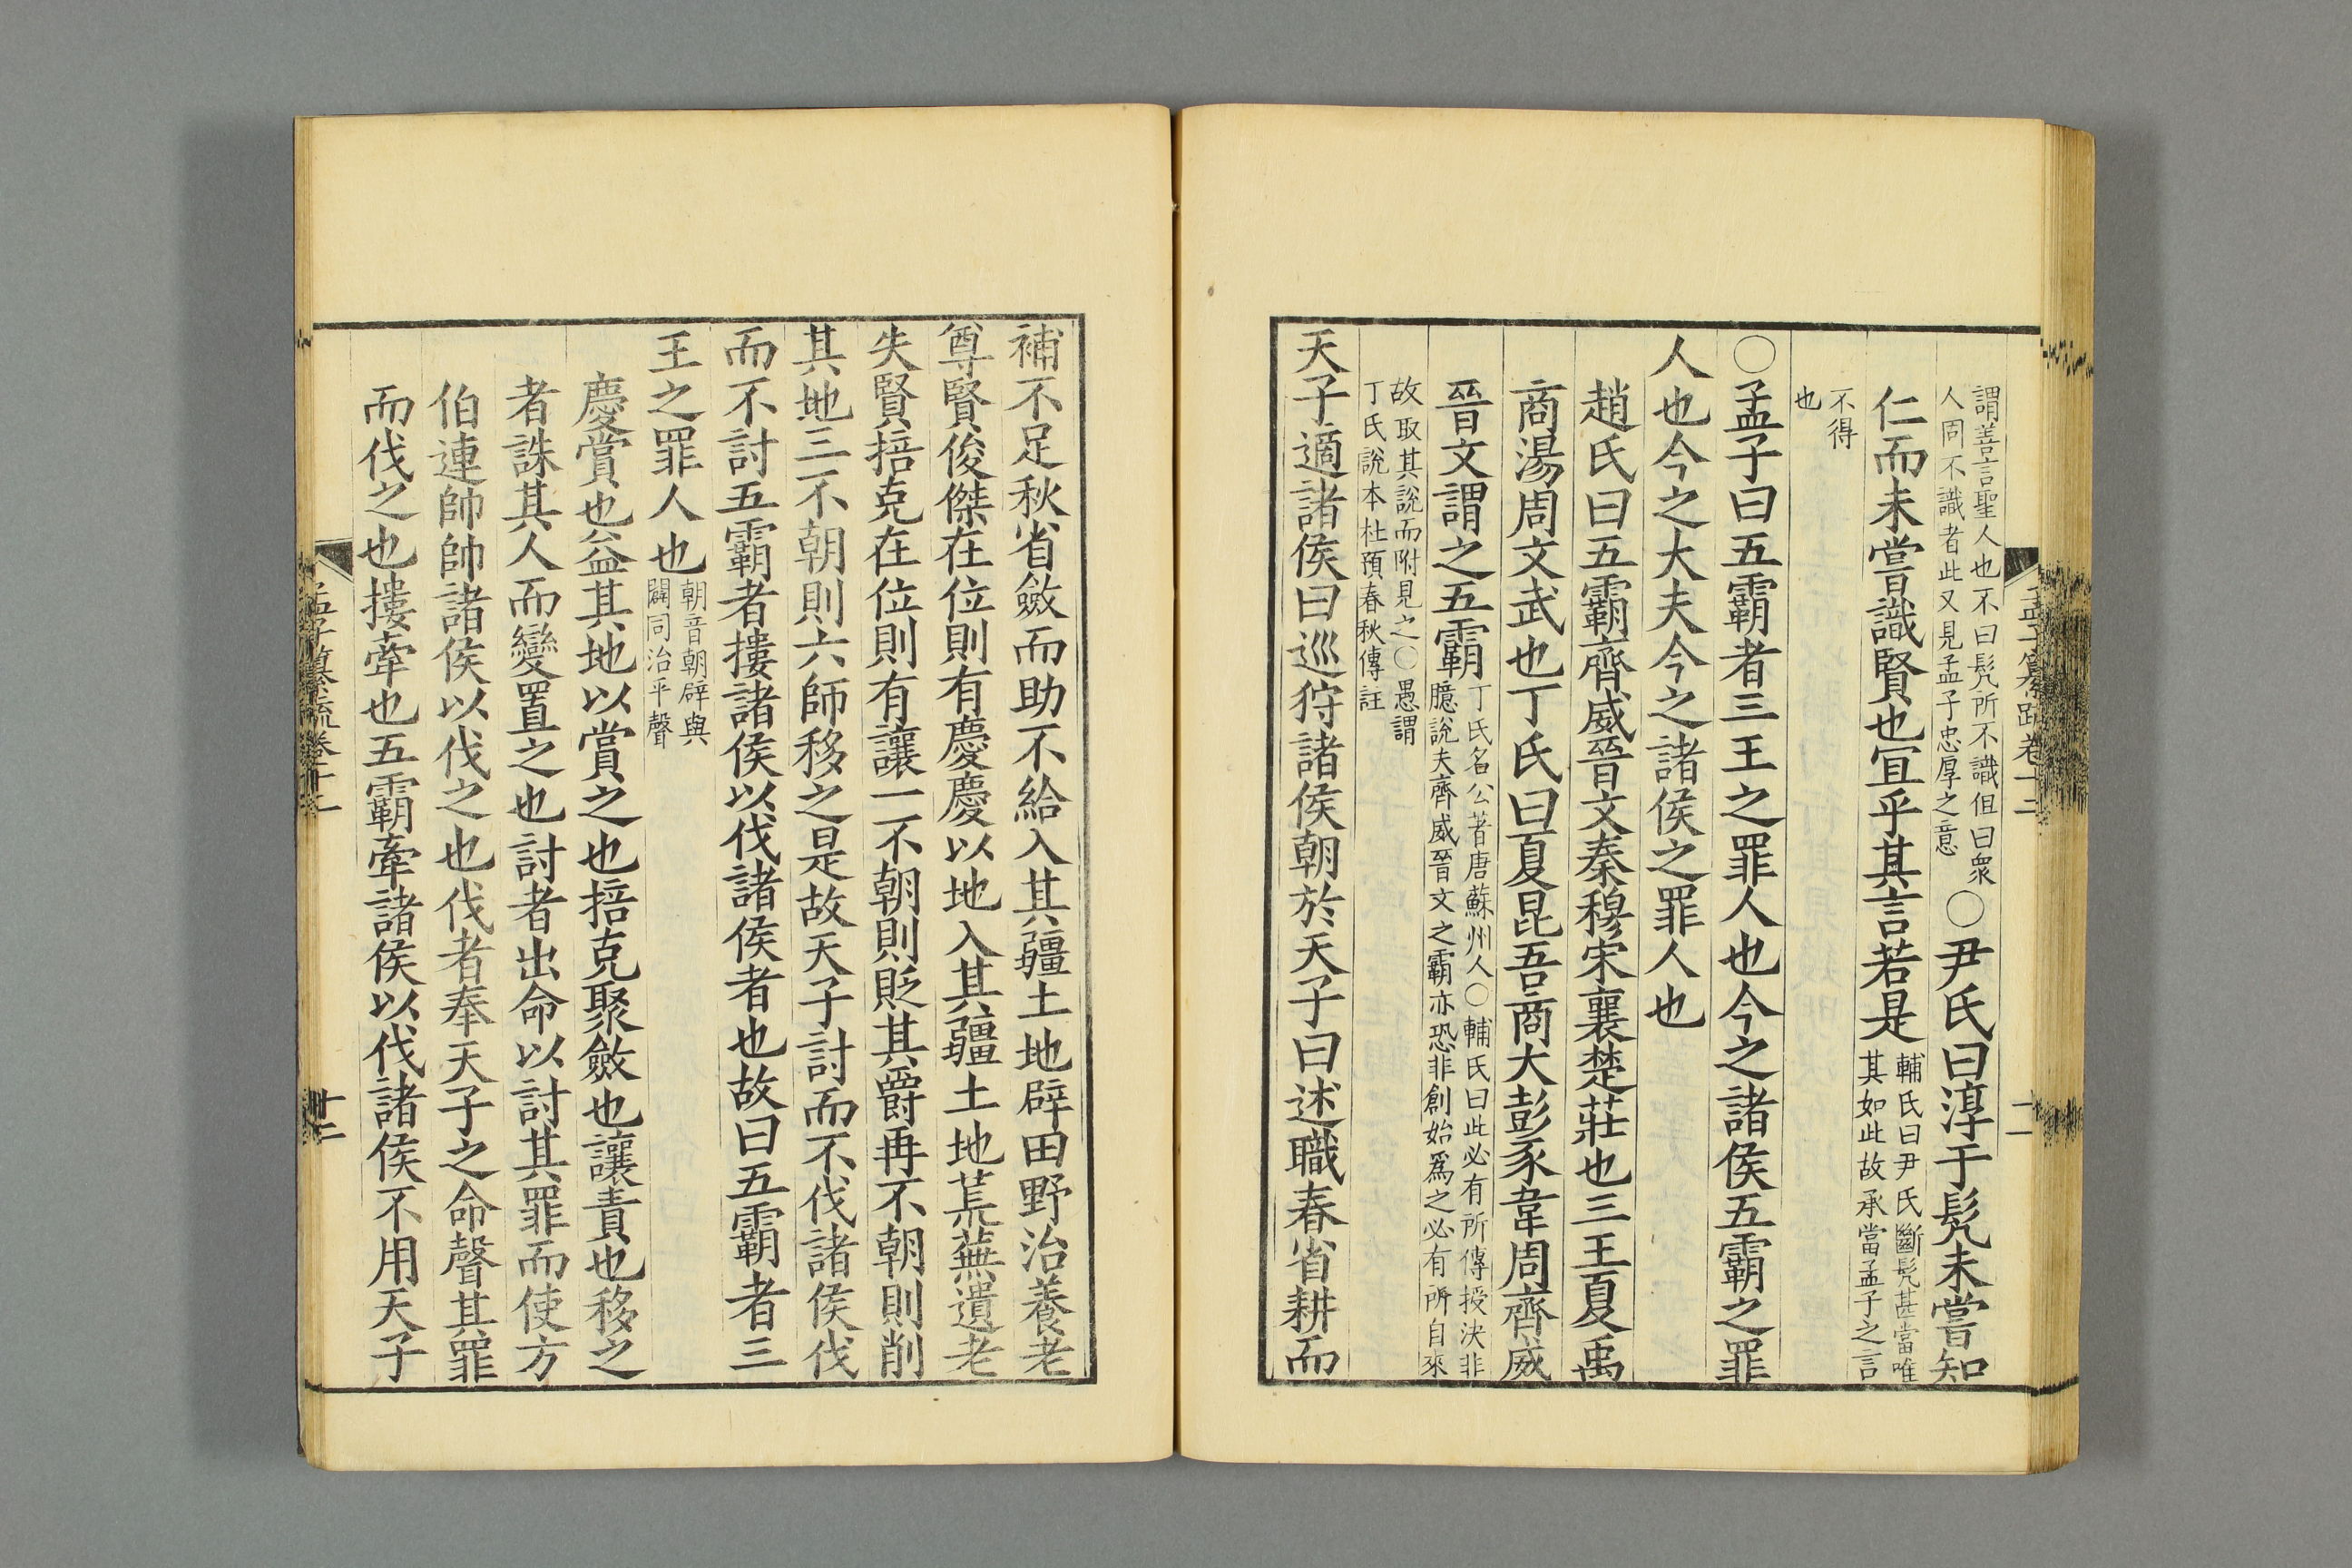 孟子纂疏卷十二
謂善言聖人也不曰髠所不識但曰衆
人同不識者此又見孟子忠厚之意
○尹氏曰淳于髠未嘗知
仁而未嘗識賢也宜乎其言若是
輔氏曰尹氏斷髠甚當唯
其如此故承當孟子之言
不得
也
○孟子曰五霸者三王之罪人也今之諸侯五霸之罪
人也今之大夫今之諸侯之罪人也
趙氏曰五霸齊威晉文秦穆宋襄楚莊也三王夏禹
商湯周文武也丁氏曰夏昆吾商大彭豕韋周齊威
晉文謂之五霸
丁氏名公著唐蘇州人○輔氏曰此必有所傳授決非
臆說夫齊威晉文之霸亦恐非創始爲之必有所自來
故取其說而附見之○愚謂
丁氏說本杜預春秋傳註
天子適諸侯曰巡狩諸侯朝於天子曰述職春省耕而
補不足秋省斂而助不給入其疆土地辟田野治養老
尊賢俊傑在位則有慶慶以地入其疆土地荒蕪遺老
失賢掊克在位則有讓一不朝則貶其爵再不朝則削
其地三不朝則六師移之是故天子討而不伐諸侯伐
而不討五霸者摟諸侯以伐諸侯者也故曰五霸者三
王之罪人也
朝音朝辟與
闢同治平聲
慶賞也益其地以賞之也掊克聚斂也讓責也移之
者誅其人而變置之也討者出命以討其罪而使方
伯連帥帥諸侯以伐之也伐者奉天子之命聲其罪
而伐之也摟牽也五霸牽諸侯以伐諸侯不用天子
孟子纂疏卷十二